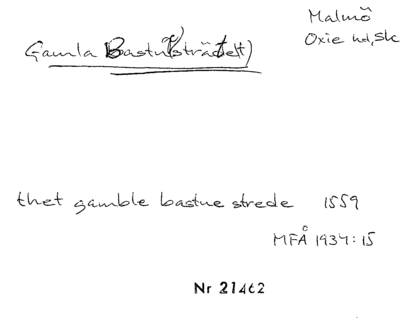 Malmö
Oxie hd, Sk
Gamla
thet gamble bastue strede 1559
MFÅ 1934:15
Nr 21462